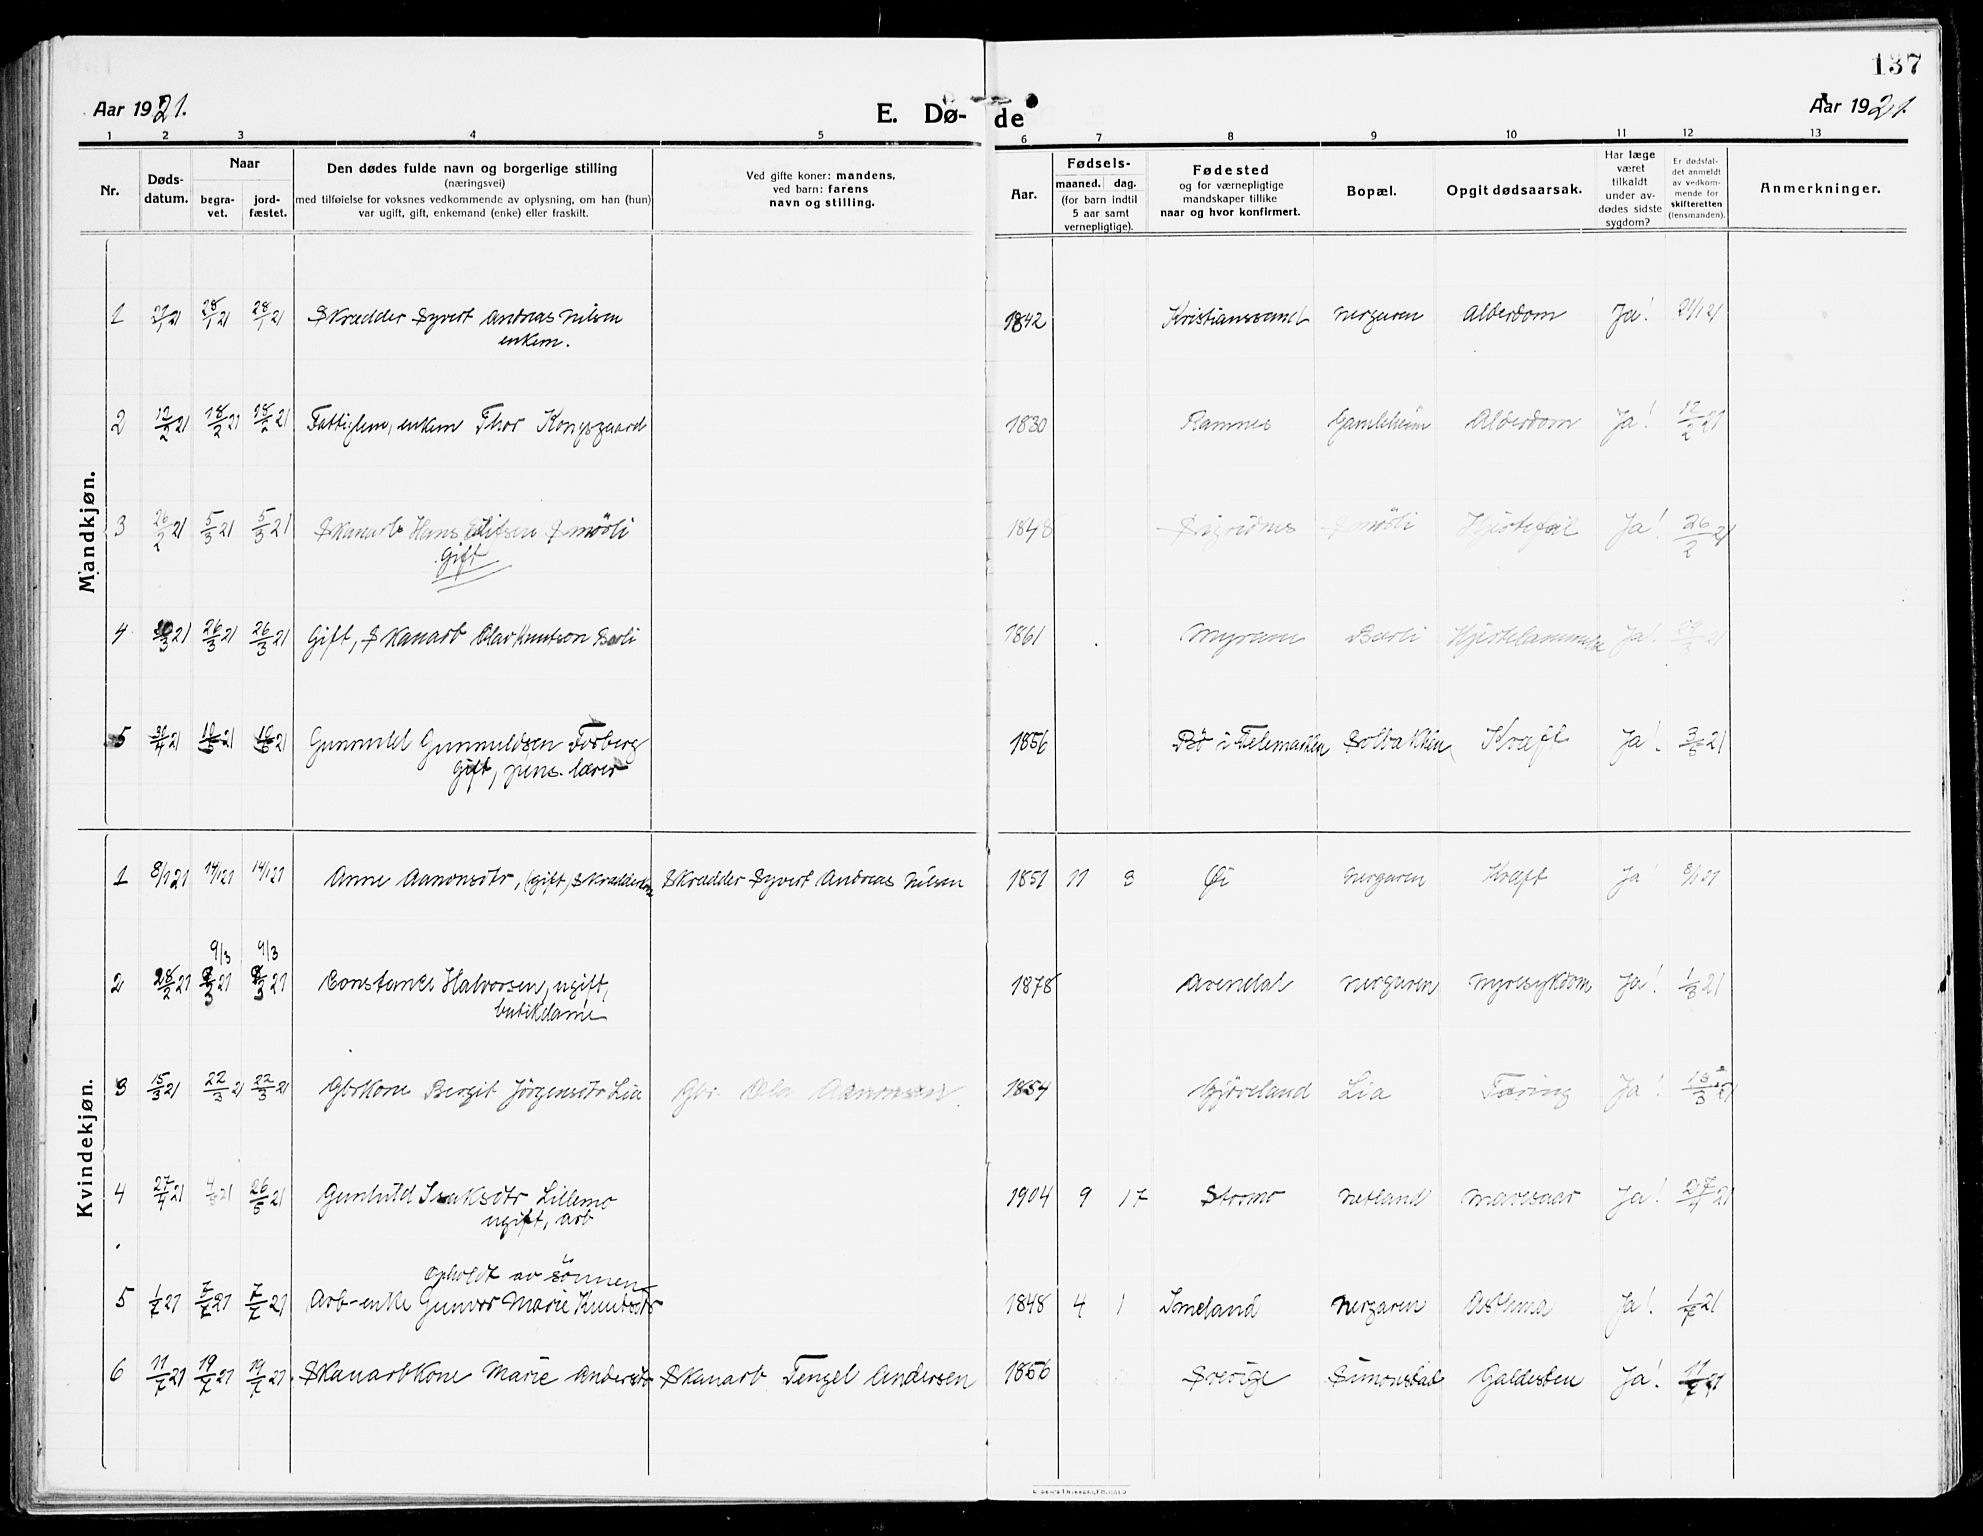 137
Aar 1921. E. Dø- de Aar 1921.
1 2 3 4 5 6 7 8 9 10 11 12 13
Nr. Dødsdatum. Naar begravet. jordfæstet. Den dødes fulde navn og borgerlige stilling (næringsvei) med tilføielse for voksnes vedkommende av oplysning, om han (hun) var ugift, gift, enkemand (enke) eller fraskilt. Ved gifte koner: mandens, ved barn: farens navn og stilling. Aar. Fødsels- maaned. dag. (for barn indtil 5 aar samt vernepligtige). Fødested og for værnepligtige mandskaper tillike naar og hvor konfirmert. Bopæl. Opgit dødsaarsak. Har læge været tilkaldt under avdødes sidste sygdom? Er dødsfaldet anmeldt av vedkommende for skifteretten (lensmanden). Anmerkninger.
Mandkjøn.
1 27/1 21 28/1 21 28/1 21 Skrædder Syvert Andreas Nilsen 1842 Kristianssand Nergaren Alderdom Ja! 27/1 21
enkem.
2 12/2 21 18/2 21 18/2 21 Fattiglem, enkem Thor Kongsgaard 1830 Ramnes Gamleheim Alderdom Ja! 12/2 21
3 26/2 21 5/3 21 5/3 21 Skanarb Hans Smøli 1848 Sigridnes Smøli Hjertefeil Ja! 26/2 21
Gift
4 21 26/3 21 26/3 21 Gift, Skanarb Olav Knutson Berli 1861 Myrane Berli Hjertelammelse Ja! /3 21
5 30/4 21 10/5 21 10/5 21 Gunnuld Gunnuldsen Forberg 1856 Bø i Telemarken Solbakken Kræft Ja! 3/5 21
gift, pens. lærer
Kvindekjøn.
1 8/1 21 14/1 21 14/1 21 Anne Aanonsdtr, (gift) Skrædderkone Skrædder Syvert Andreas Nilsen 1851 11 3 Øi Nergaren Kræft Ja 8/1 21
9/3 9/3
2 28/2 21 8/3 21 8/3 21 Constance Halvorsen, ugift, 1878 Arendal Nergaren Nyresykdom Ja! 1/3 21
butikdame
3 15/3 21 22/3 21 22/3 21 Gbrkone Bergit Jörgensdtr Lia Gbr. Ola Aanonsen 1854 Gjöveland Lia Tæring Ja! 15/3 21
4 27/4 21 4/5 21 26/5 21 Gunhild Isaksdtr Lillemo 1904 9 17 Stormo Netland Mavesaar Ja! 27/4 21
ugift, arb
opholdt av sönnen
5 1/7 21 7/7 21 7/7 21 Arb-enke Gunvor Marie Knutsdtr 1848 4 1 Smeland Nergaren Asthma Ja! 1/7 21
6 11/7 21 19/7 21 19/7 21 Skanarbkone Marie Andersdtr Skanarb Tengel Andersen 1856 Sverige Simonstad Galdesten Ja! 11/7 21